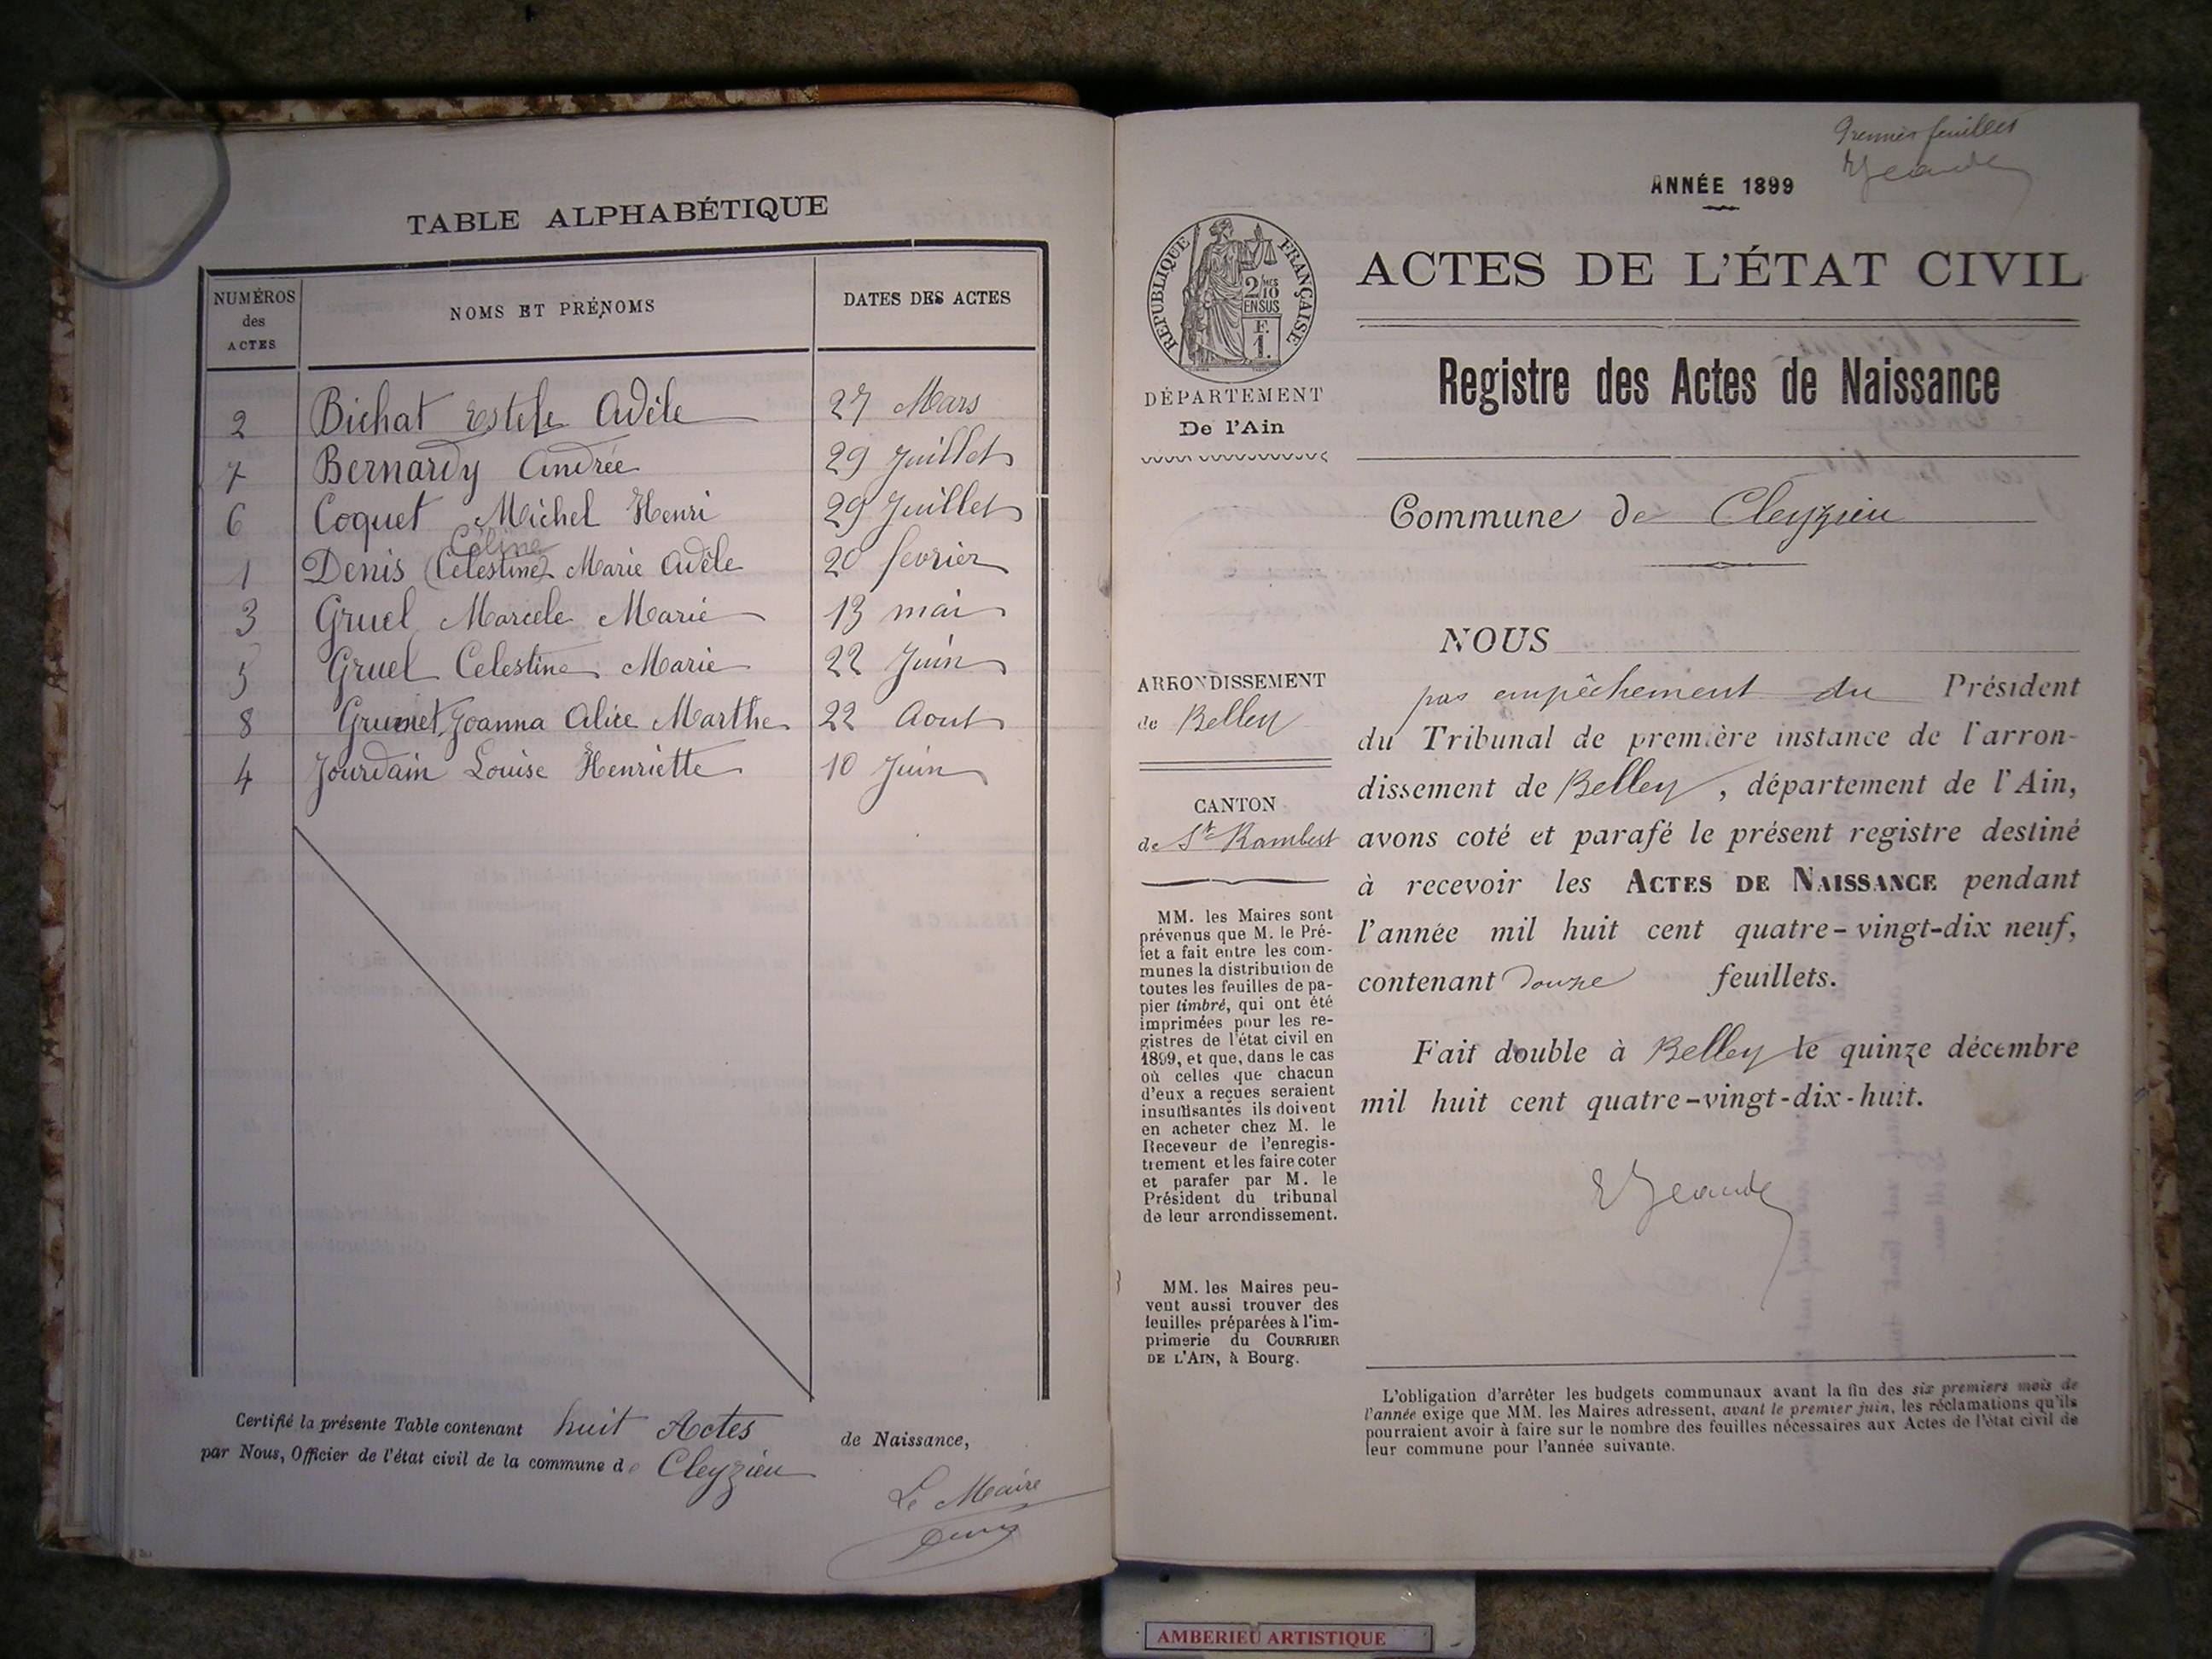 TABLE ALPHABÉTIQUE
NUMÉROS
des
ACTES
NOMS ET PRÉNOMS
DATES DES ACTES
2 Bichat Estele Adèle 27 Mars
7 Bernardy Andrée 29 Juillet
6 Coquet Michel Henri 29 Juillet
Céline
1 Denis (Celestine) Marie Adèle 20 fevrier
3 Gruel Marcele Marie 13 mai
5 Gruel Celestine Marie 22 Juin
8 Grumet Joanna Alice Marthe 22 Aout
4 Jourdain Louise Henriette 10 Juin
Certifié la présente Table contenant huit Actes de Naissance,
par Nous, Officier de l'état civil de la commune de Cleyzieu
Le Maire
Premier feuillet
ANNÉE 1899
RÉPUBLIQUE FRANÇAISE
2/10 MES
EN SUS
F.
1.
ACTES DE L'ÉTAT CIVIL
DÉPARTEMENT
De l'Ain
Registre des Actes de Naissance
Commune de Cleyzieu
ARRONDISSEMENT
de Belley
CANTON
de St Rambert
MM. les Maires sont
prévenus que M. le Pré-
fet a fait entre les com-
munes la distribution de
toutes les feuilles de pa-
pier timbré, qui ont été
imprimées pour les re-
gistres de l'état civil en
1899, et que, dans le cas
où celles que chacun
d'eux a reçues seraient
insuffisantes ils doivent
en acheter chez M. le
Receveur de l'enregis-
trement et les faire coter
et parafer par M. le
Président du tribunal
de leur arrondissement.
MM. les Maires peu-
vent aussi trouver des
feuilles préparées à l'im-
primerie du COURRIER
DE L'AIN, à Bourg.
NOUS
par empêchement du Président
du Tribunal de première instance de l'arron-
dissement de Belley, département de l'Ain,
avons coté et parafé le présent registre destiné
à recevoir les ACTES DE NAISSANCE pendant
l'année mil huit cent quatre-vingt-dix neuf,
contenant douze feuillets.
Fait double à Belley le quinze décembre
mil huit cent quatre-vingt-dix-huit.
L'obligation d'arrêter les budgets communaux avant la fin des six premiers mois de
l'année exige que MM. les Maires adressent, avant le premier juin, les réclamations qu'ils
pourraient avoir à faire sur le nombre des feuilles nécessaires aux Actes de l'état civil de
leur commune pour l'année suivante.
AMBERIEU ARTISTIQUE